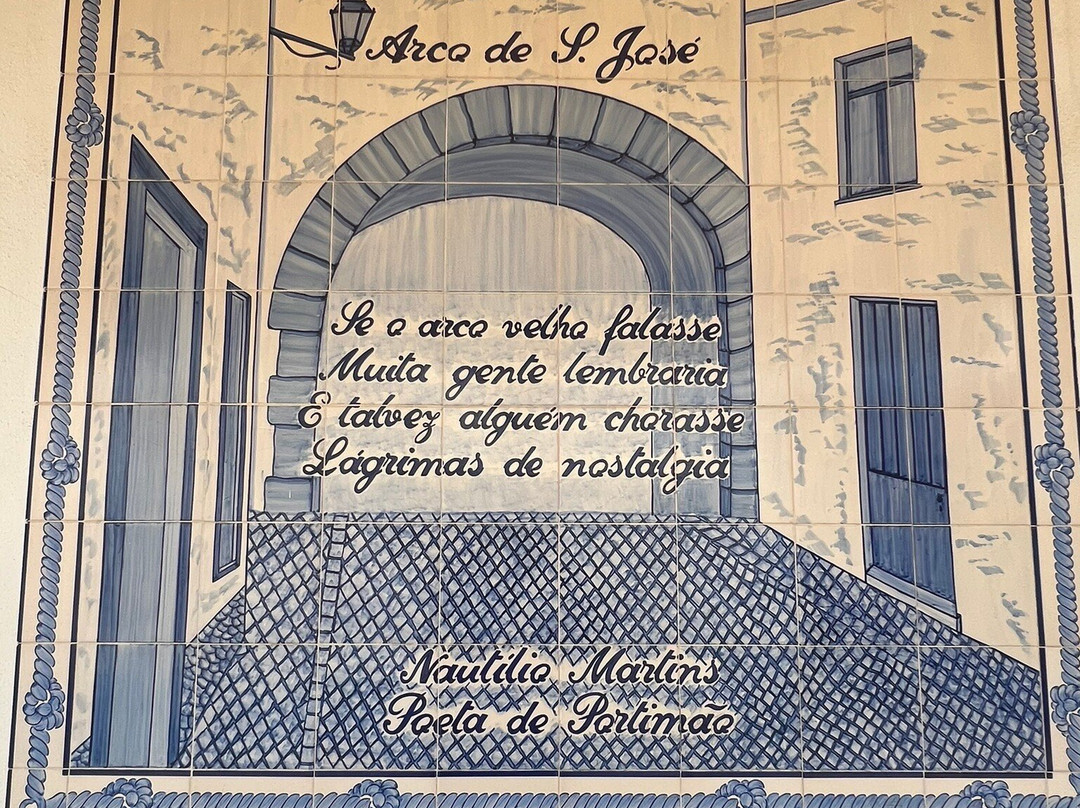 Arco de S. José
Se o arco velho falasse
Muita gente lembraria
E talvez alguém chorasse
Lágrimas de nostalgia
Nautílio Martins
Poeta de Portimão